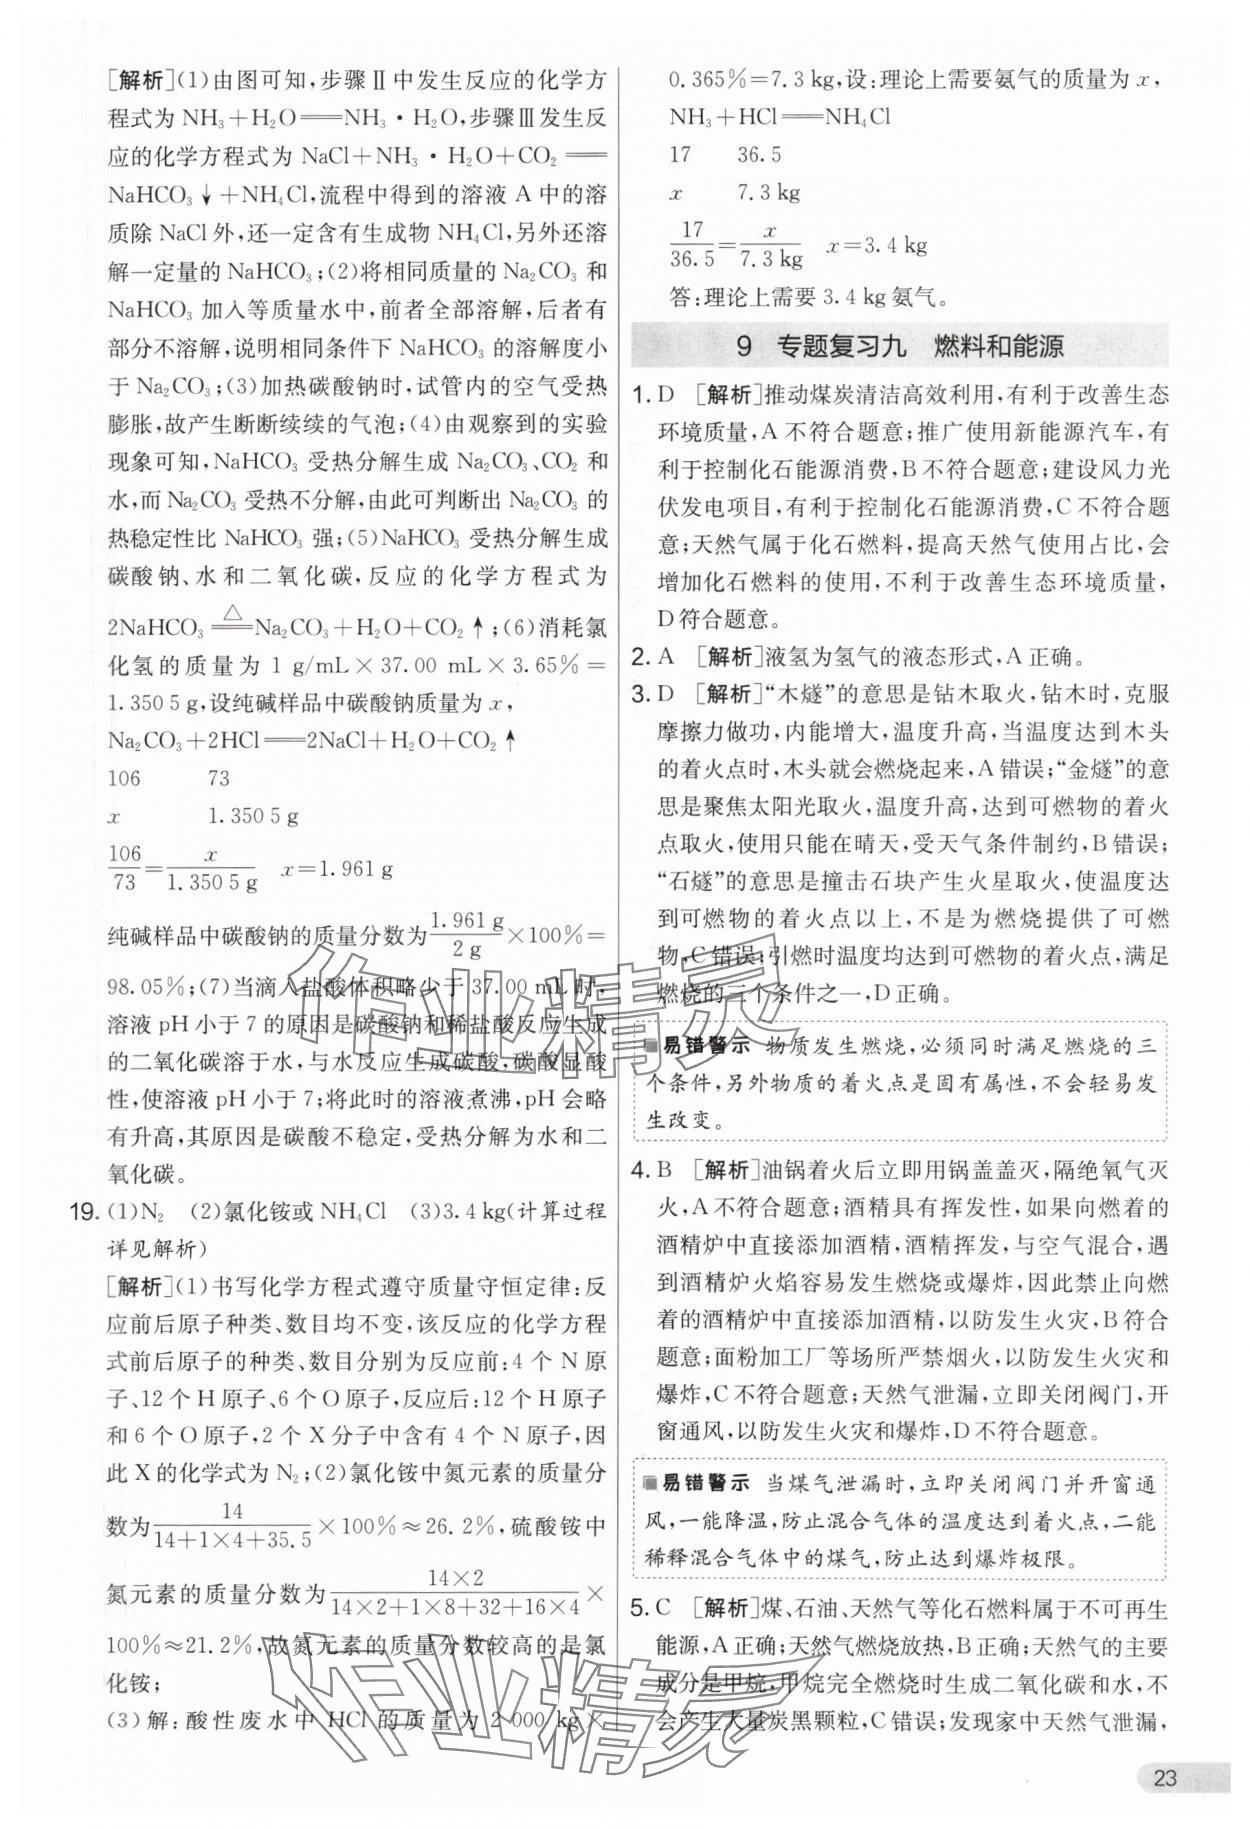 [解析](1)由图可知,步骤Ⅱ中发生反应的化学方
程式为 NH₃+H₂O══NH₃·H₂O,步骤Ⅲ发生反
应的化学方程式为 NaCl+NH₃·H₂O+CO₂══
NaHCO₃↓+NH₄Cl,流程中得到的溶液 A 中的溶
质除 NaCl 外,还一定含有生成物 NH₄Cl,另外还溶
解一定量的 NaHCO₃;(2)将相同质量的 Na₂CO₃ 和
NaHCO₃ 加入等质量水中,前者全部溶解,后者有
部分不溶解,说明相同条件下 NaHCO₃ 的溶解度小
于 Na₂CO₃;(3)加热碳酸钠时,试管内的空气受热
膨胀,故产生断断续续的气泡;(4)由观察到的实验
现象可知,NaHCO₃ 受热分解生成 Na₂CO₃、CO₂ 和
水,而 Na₂CO₃ 受热不分解,由此可判断出 Na₂CO₃ 的
热稳定性比 NaHCO₃ 强;(5)NaHCO₃ 受热分解生成
碳酸钠、水和二氧化碳,反应的化学方程式为
2NaHCO₃ ══△ Na₂CO₃+H₂O+CO₂↑;(6)消耗氯
化氢的质量为 1 g/mL×37.00 mL×3.65%=
1.350 5 g,设纯碱样品中碳酸钠质量为 x,
Na₂CO₃+2HCl══2NaCl+H₂O+CO₂↑
106 73
x 1.350 5 g
106/73=x/1.350 5 g x=1.961 g
纯碱样品中碳酸钠的质量分数为1.961 g/2 g×100%=
98.05%;(7)当滴入盐酸体积略少于 37.00 mL 时,
溶液 pH 小于 7 的原因是碳酸钠和稀盐酸反应生成
的二氧化碳溶于水,与水反应生成碳酸,碳酸显酸
性,使溶液 pH 小于 7;将此时的溶液煮沸,pH 会略
有升高,其原因是碳酸不稳定,受热分解为水和二
氧化碳。
19. (1)N₂ (2)氯化铵或 NH₄Cl (3)3.4 kg(计算过程
详见解析)
[解析](1)书写化学方程式遵守质量守恒定律:反
应前后原子种类、数目均不变,该反应的化学方程
式前后原子的种类、数目分别为反应前:4 个 N 原
子、12 个 H 原子、6 个 O 原子,反应后:12 个 H 原子
和 6 个 O 原子,2 个 X 分子中含有 4 个 N 原子,因
此 X 的化学式为 N₂;(2)氯化铵中氮元素的质量分
数为14/14+1×4+35.5×100%≈26.2%,硫酸铵中
氮元素的质量分数为14×2/14×2+1×8+32+16×4×
100%≈21.2%,故氮元素的质量分数较高的是氯
化铵;
(3)解:酸性废水中 HCl 的质量为 2 000 kg×
0.365%=7.3 kg,设:理论上需要氨气的质量为 x,
NH₃+HCl══NH₄Cl
17 36.5
x 7.3 kg
17/36.5=x/7.3 kg x=3.4 kg
答:理论上需要 3.4 kg 氨气。
9 专题复习九 燃料和能源
1. D [解析]推动煤炭清洁高效利用,有利于改善生态
环境质量,A 不符合题意;推广使用新能源汽车,有
利于控制化石能源消费,B 不符合题意;建设风力光
伏发电项目,有利于控制化石能源消费,C 不符合题
意;天然气属于化石燃料,提高天然气使用占比,会
增加化石燃料的使用,不利于改善生态环境质量,
D 符合题意。
2. A [解析]液氢为氢气的液态形式,A 正确。
3. D [解析]“木燧”的意思是钻木取火,钻木时,克服
摩擦力做功,内能增大,温度升高,当温度达到木头
的着火点时,木头就会燃烧起来,A 错误;“金燧”的意
思是聚焦太阳光取火,温度升高,达到可燃物的着火
点取火,使用只能在晴天,受天气条件制约,B 错误;
“石燧”的意思是撞击石块产生火星取火,使温度达
到可燃物的着火点以上,不是为燃烧提供了可燃
物,C 错误;引燃时温度均达到可燃物的着火点,满足
燃烧的三个条件之一,D 正确。
易错警示 物质发生燃烧,必须同时满足燃烧的三
个条件,另外物质的着火点是固有属性,不会轻易发
生改变。
4. B [解析]油锅着火后立即用锅盖盖灭,隔绝氧气灭
火,A 不符合题意;酒精具有挥发性,如果向燃着的
酒精炉中直接添加酒精,酒精挥发,与空气混合,遇
到酒精炉火焰容易发生燃烧或爆炸,因此禁止向燃
着的酒精炉中直接添加酒精,以防发生火灾,B 符合
题意;面粉加工厂等场所严禁烟火,以防发生火灾和
爆炸,C 不符合题意;天然气泄漏,立即关闭阀门,开
窗通风,以防发生火灾和爆炸,D 不符合题意。
易错警示 当煤气泄漏时,立即关闭阀门并开窗通
风,一能降温,防止混合气体的温度达到着火点,二能
稀释混合气体中的煤气,防止达到爆炸极限。
5. C [解析]煤、石油、天然气等化石燃料属于不可再生
能源,A 正确;天然气燃烧放热,B 正确;天然气的主要
成分是甲烷,甲烷完全燃烧时生成二氧化碳和水,不
会产生大量炭黑颗粒,C 错误;发现家中天然气泄漏,
23
作业精灵
作业精灵